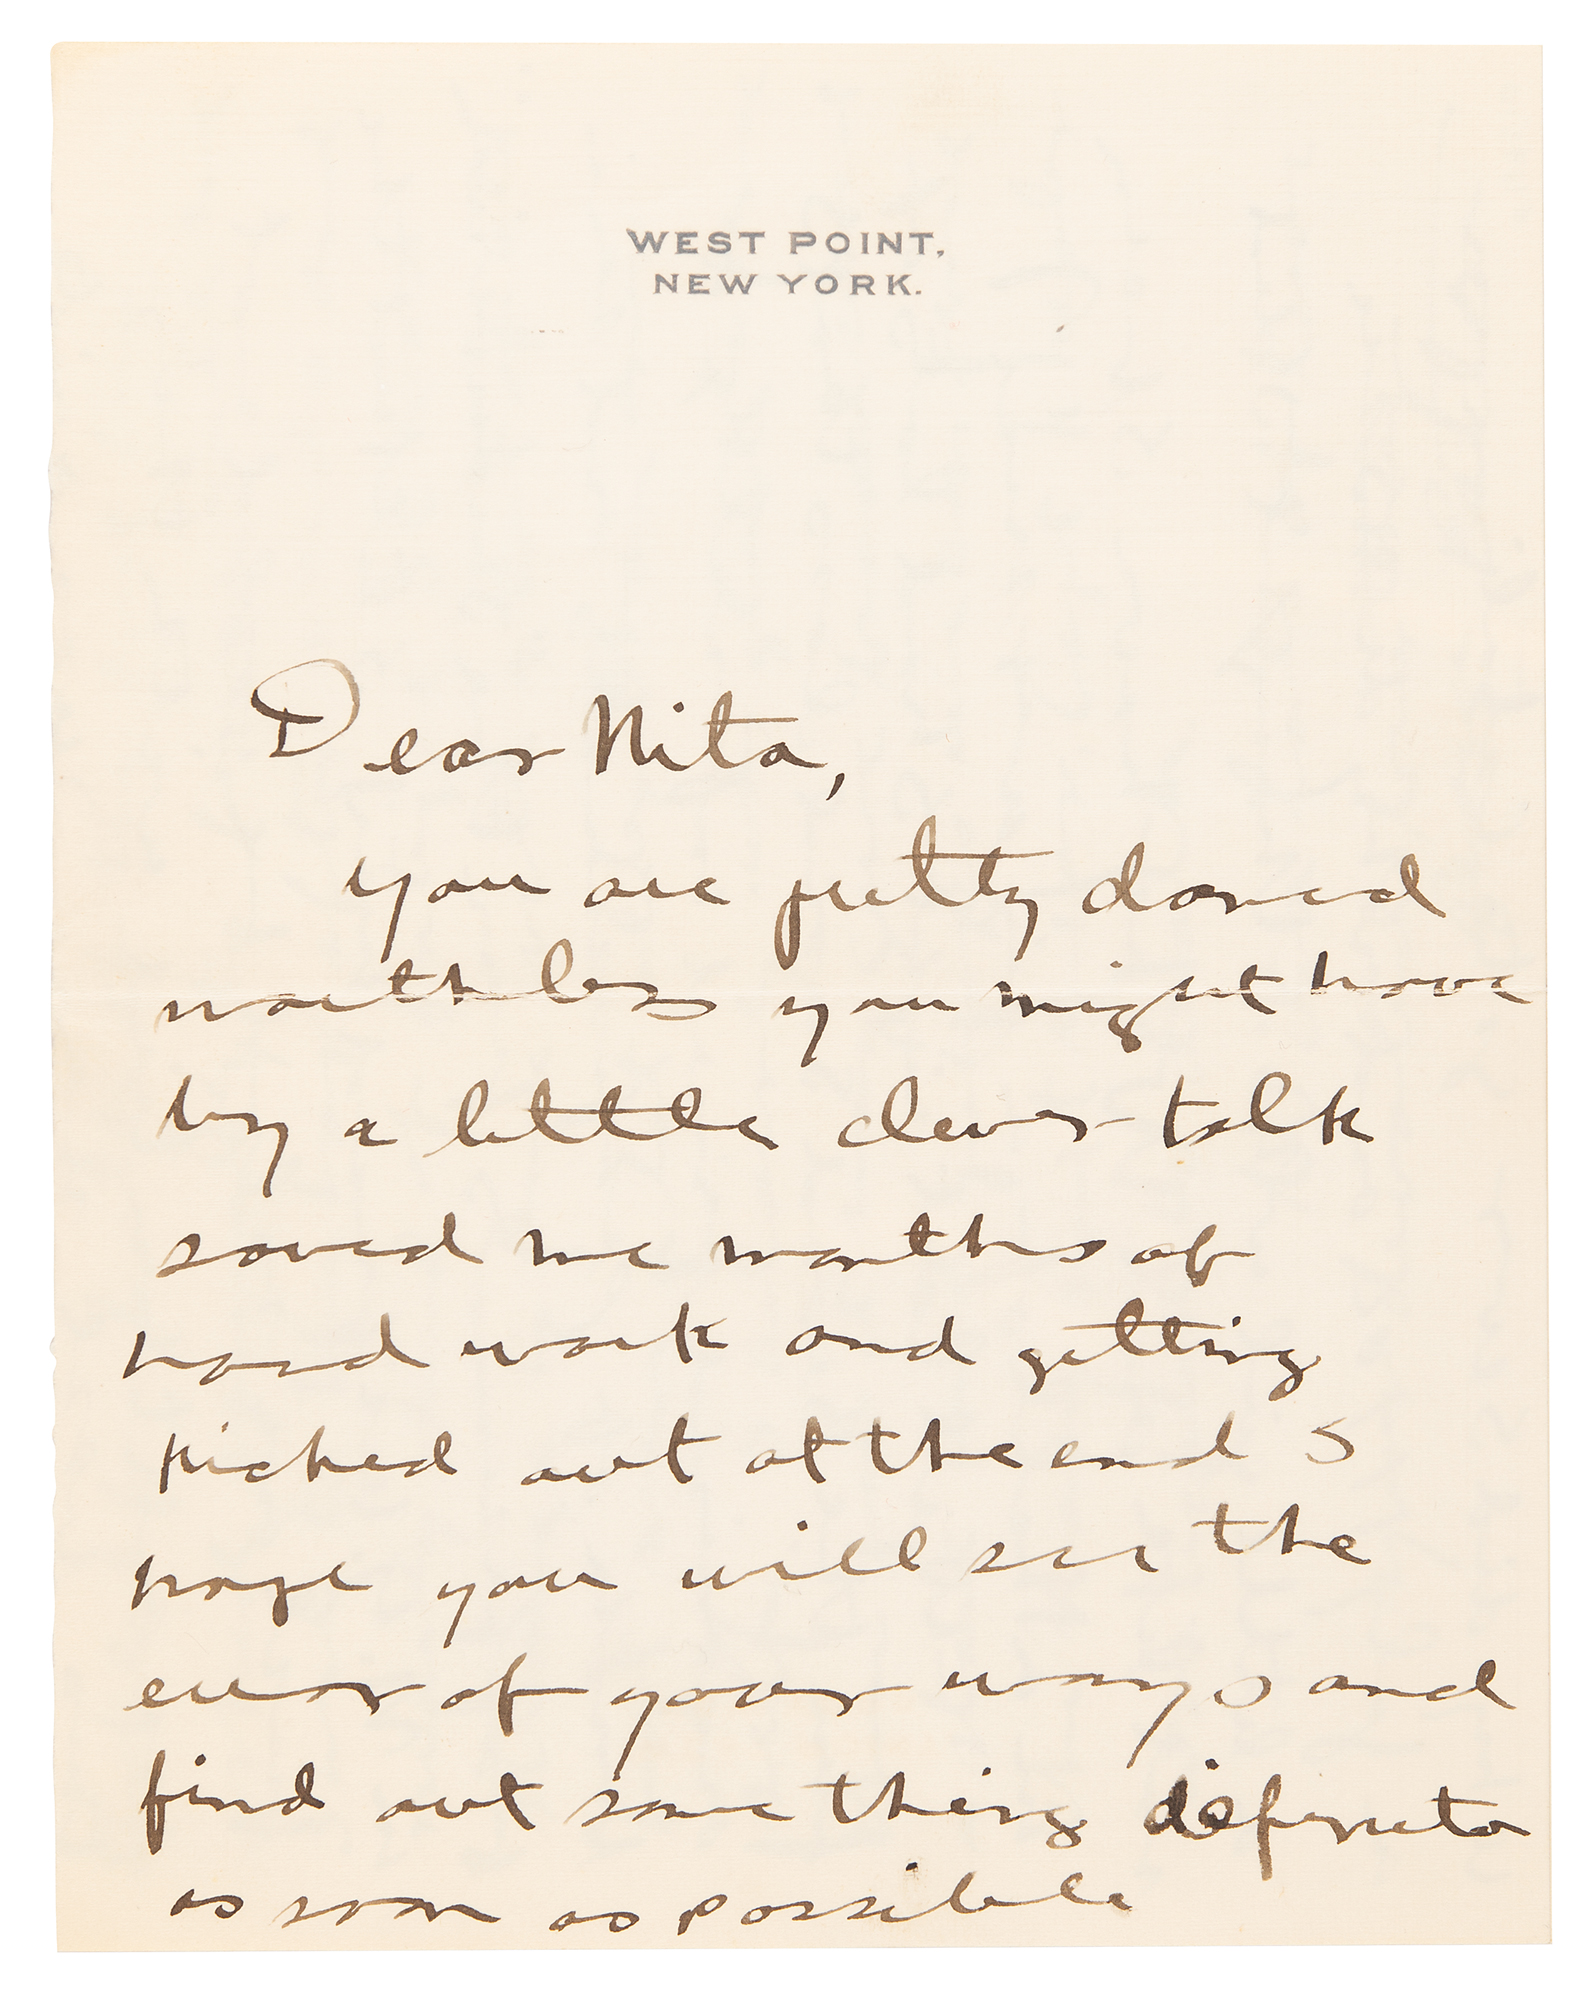 WEST POINT,
NEW YORK.
Dear Nita,
you are pretty darned
worthless you might have
by a little clever talk
saved me months of
hard work and getting
kicked out at the end I
hope you will see the
error of your ways and
find out some thing
as soon as possible